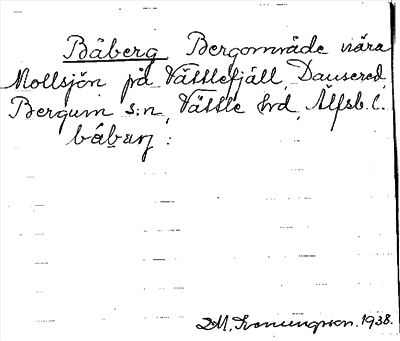 Båberg Bergområde nära
Mollsjön på Vättlefjäll, Dansered,
Bergum s:n, Vättle hrd, Älfsb. l.
båbærj :
1938.